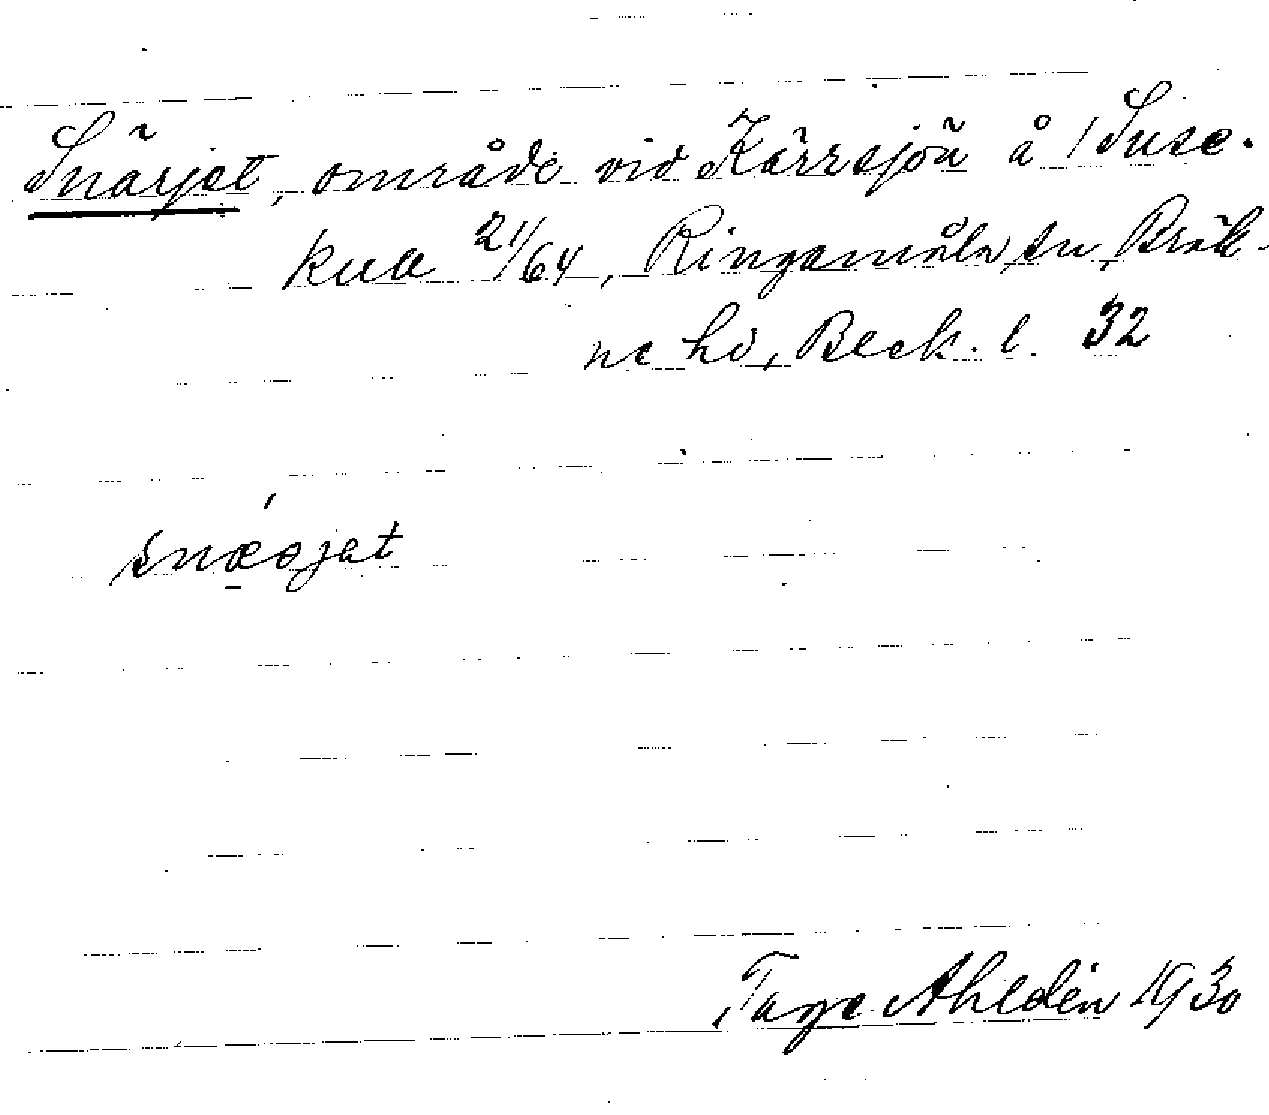 Snärjet, område vid Kärrsjön å 1 Suse-
kulla 21/64, Ringamåla sn, Bräk-
ne hd, Bleck. l. 32
snæojət
Tage Ahldén 1930